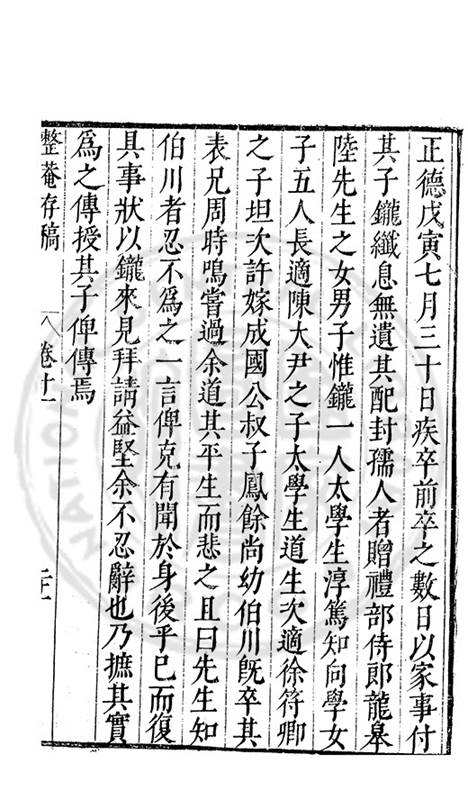 正德戊寅七月三十日疾卒前卒之數日以家事付
其子鑨纖息無遺其配封孺人者贈禮部侍郎龍皋
陸先生之女男子惟鑨一人太學生淳篤知向學女
子五人長適陳大尹之子太學生道生次適徐符卿
之子坦次許嫁成國公叔子鳳餘尚幼伯川旣卒其
表兄周時鳴嘗過余道其平生而悲之且曰先生知
伯川者忍不爲之一言俾克有聞於身後乎已而復
具事狀以鑨來見拜請益堅余不忍辭也乃摭其實
爲之傳授其子俾傳焉
整菴存稿 卷十一